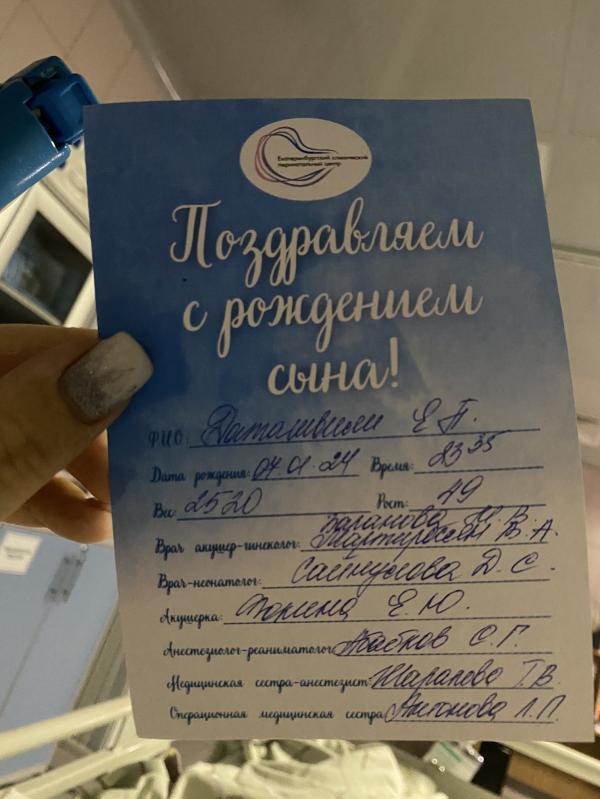 Екатеринбургский клинический
перинатальный центр
Поздравляем
с рождением
сына!
ФИО: Даташвили Е П.
Дата рождения: 04.01.24 Время: 23 35
Вес: 2520 Рост: 49
Баранова И. В.
Врач акушер-гинеколог: Мартиросян В. А.
Врач-неонатолог: Д. С.
Акушерка: Е. Ю.
Анестезиолог-реаниматолог: О. Г.
Медицинская сестра-анестезист: Шарапова Т. В.
Операционная медицинская сестра: Антонова Л. П.